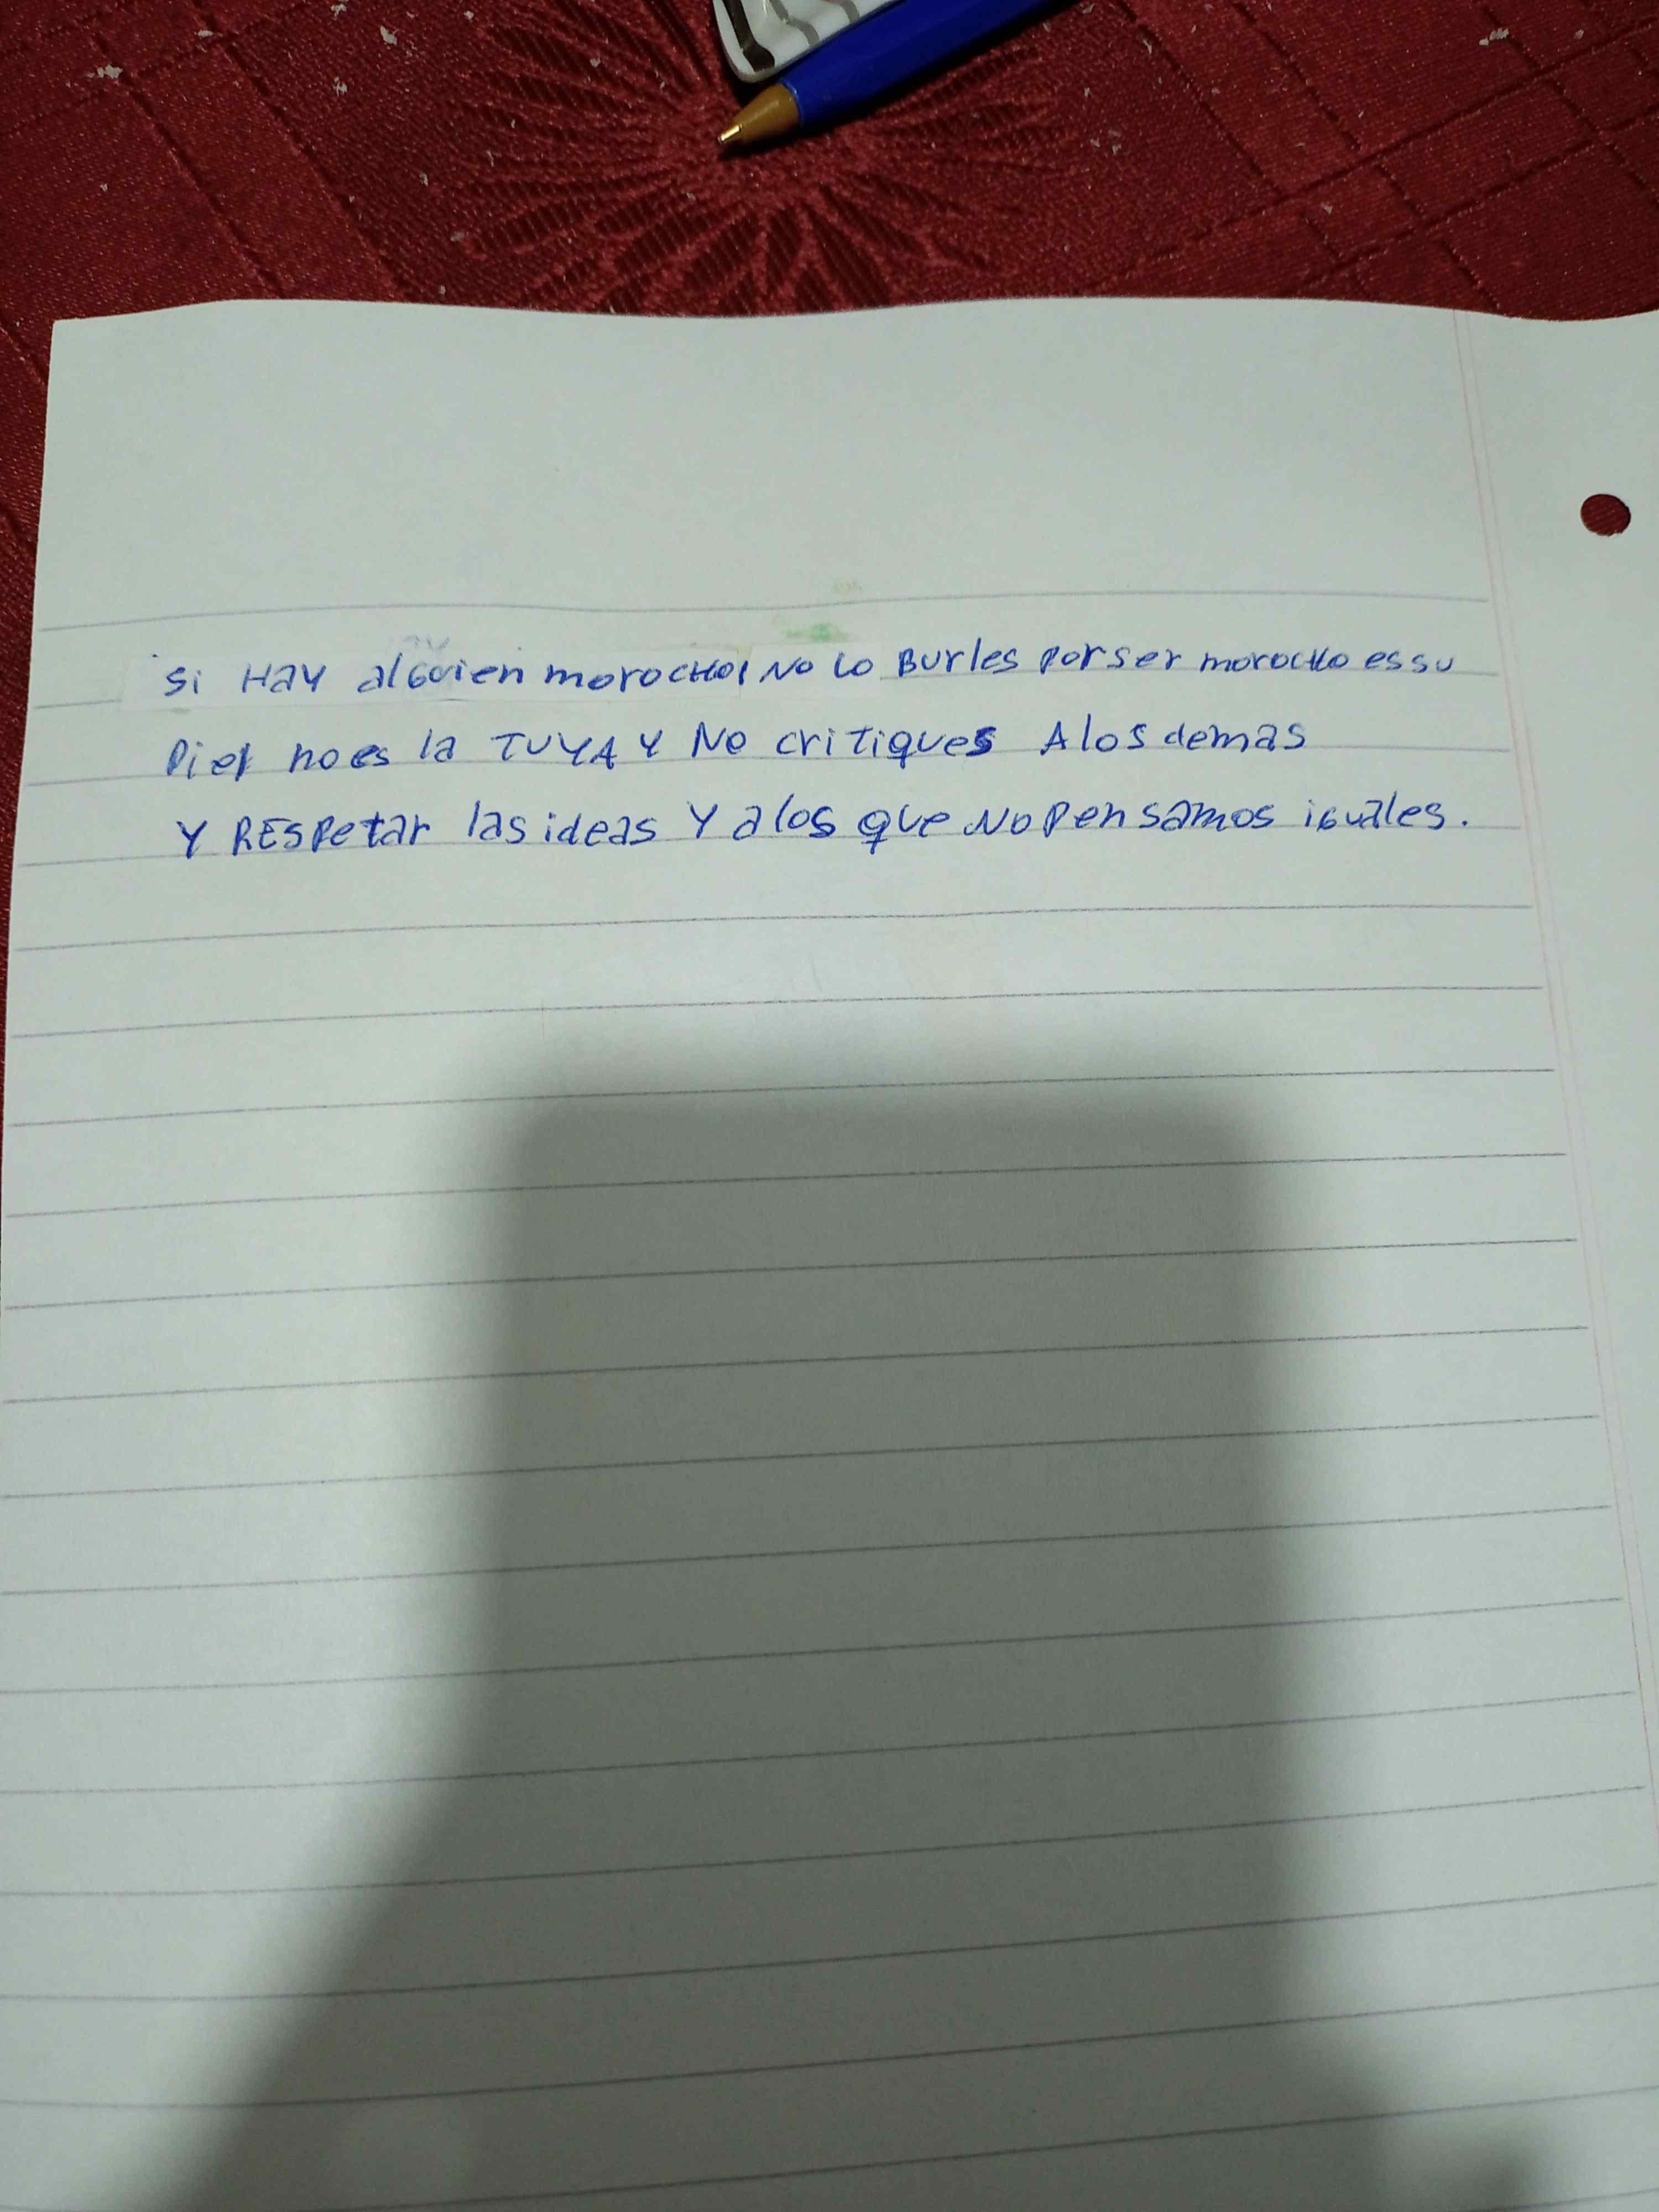 Si HaY alguien morocHo, No lo Burles Por ser morocHo es su
Piel no es la TUYA Y No critiques A los demas
Y RESPetar las ideas Y a los que No Pensamos iguales.